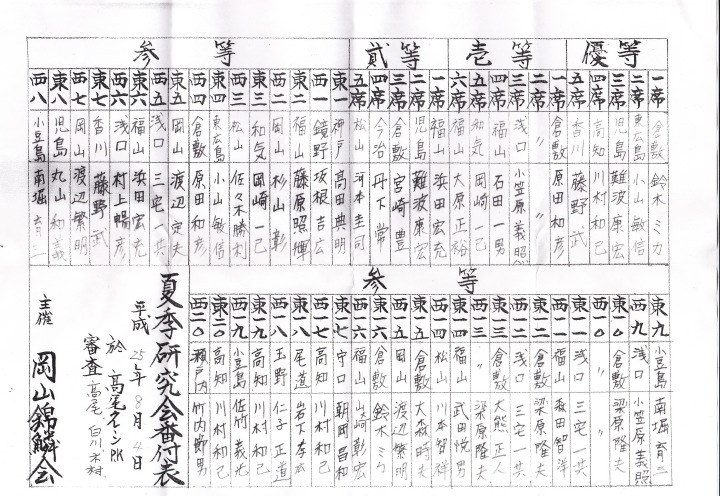 優等
一席 倉敷 鈴木ミカ
二席 東広島 小山敏信
三席 児島 難波康宏
四席 高知 川村和己
五席 香川 藤野武
壱等
一席 倉敷 原田和彦
二席 〃 〃
三席 浅口 小笠原義照
四席 福山 石田一男
五席 和気 岡崎一己
六席 福山 大原正裕
貳等
一席 福山 浜田宏充
二席 児島 難波康宏
三席 倉敷 宮崎豊
四席 今治 丹下常
五席 松山 河本圭司
参等
東一 神戸 高田典明
西一 鏡野 坂根吉広
東二 福山 藤原照輝
西二 岡山 杉山彰
東三 和気 岡崎一己
西三 松山 佐々木勝利
東四 東広島 小山敏信
西四 倉敷 原田和彦
東五 岡山 渡辺定夫
西五 浅口 三宅一共
東六 福山 浜田宏充
西六 浅口 村上暢彦
東七 香川 藤野武
西七 岡山 渡辺繁明
東八 児島 丸山和義
西八 小豆島 南堀育三
参等
東九 小豆島 南堀育三
西九 浅口 小笠原義照
東一〇 倉敷 梁原隆夫
西一〇 〃 〃
東一一 浅口 三宅一共
西一一 福山 森田智洋
東一二 倉敷 梁原隆夫
西一二 浅口 三宅一共
東一三 倉敷 大熊正人
西一三 〃 梁原隆夫
東一四 福山 武田悦男
西一四 松山 川本智祥
東一五 倉敷 大森時夫
西一五 岡山 渡辺繁明
東一六 倉敷 鈴木ミカ
西一六 福山 山崎彰宏
東一七 守口 朝岡昌和
西一七 高知 川村和己
東一八 尾道 岩下孝広
西一八 玉野 仁子正道
東一九 高知 川村和己
西一九 小豆島 佐竹義光
東二〇 高知 川村和己
西二〇 瀬戸内 竹内 男
夏季研究会番付表
平成25年8月4日
於 高尾 PK
審査 高尾 白川 木村
主催 岡山錦鱗会